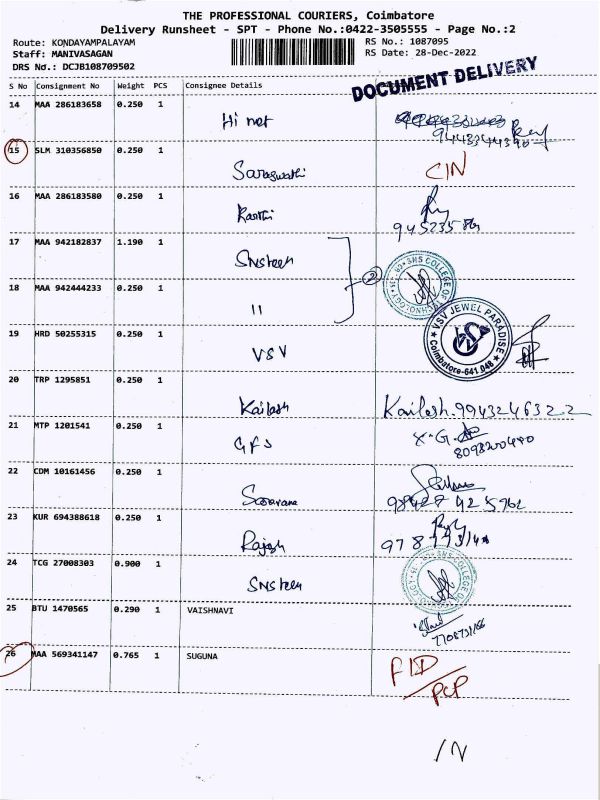 THE PROFESSIONAL COURIERS, Coimbatore
Delivery Runsheet - SPT - Phone No.:0422-3505555 - Page No.:2
Route: KONDAYAMPALAYAM
Staff: MANIVASAGAN
DRS No.: DCJB108709502
RS No.: 1087095
RS Date: 28-Dec-2022
DOCUMENT DELIVERY
S No Consignment No Weight PCS Consignee Details
14 MAA 286183658 0.250 1
Hi net
15 SLM 310356850 0.250 1
Saraswathi CIN
16 MAA 286183580 0.250 1
Karthi
17 MAA 942182837 1.190 1
Snsteen
2
SNS COLLEGE OF
18 MAA 942444233 0.250 1
11
VSV JEWEL PARADISE
Coimbatore-641 048
19 HRD 50255315 0.250 1
VSV
20 TRP 1295851 0.250 1
Kailash Kailash. 9943246322
21 MTP 1201541 0.250 1
GFS
8098200480
22 CDM 10161456 0.250 1
Saravana
23 KUR 694388618 0.250 1
Rajesh
24 TCG 27008303 0.900 1
Snsteen
SNS COLLEGE
25 BTU 1470565 0.290 1 VAISHNAVI
26 MAA 569341147 0.765 1 SUGUNA
PCP
/N